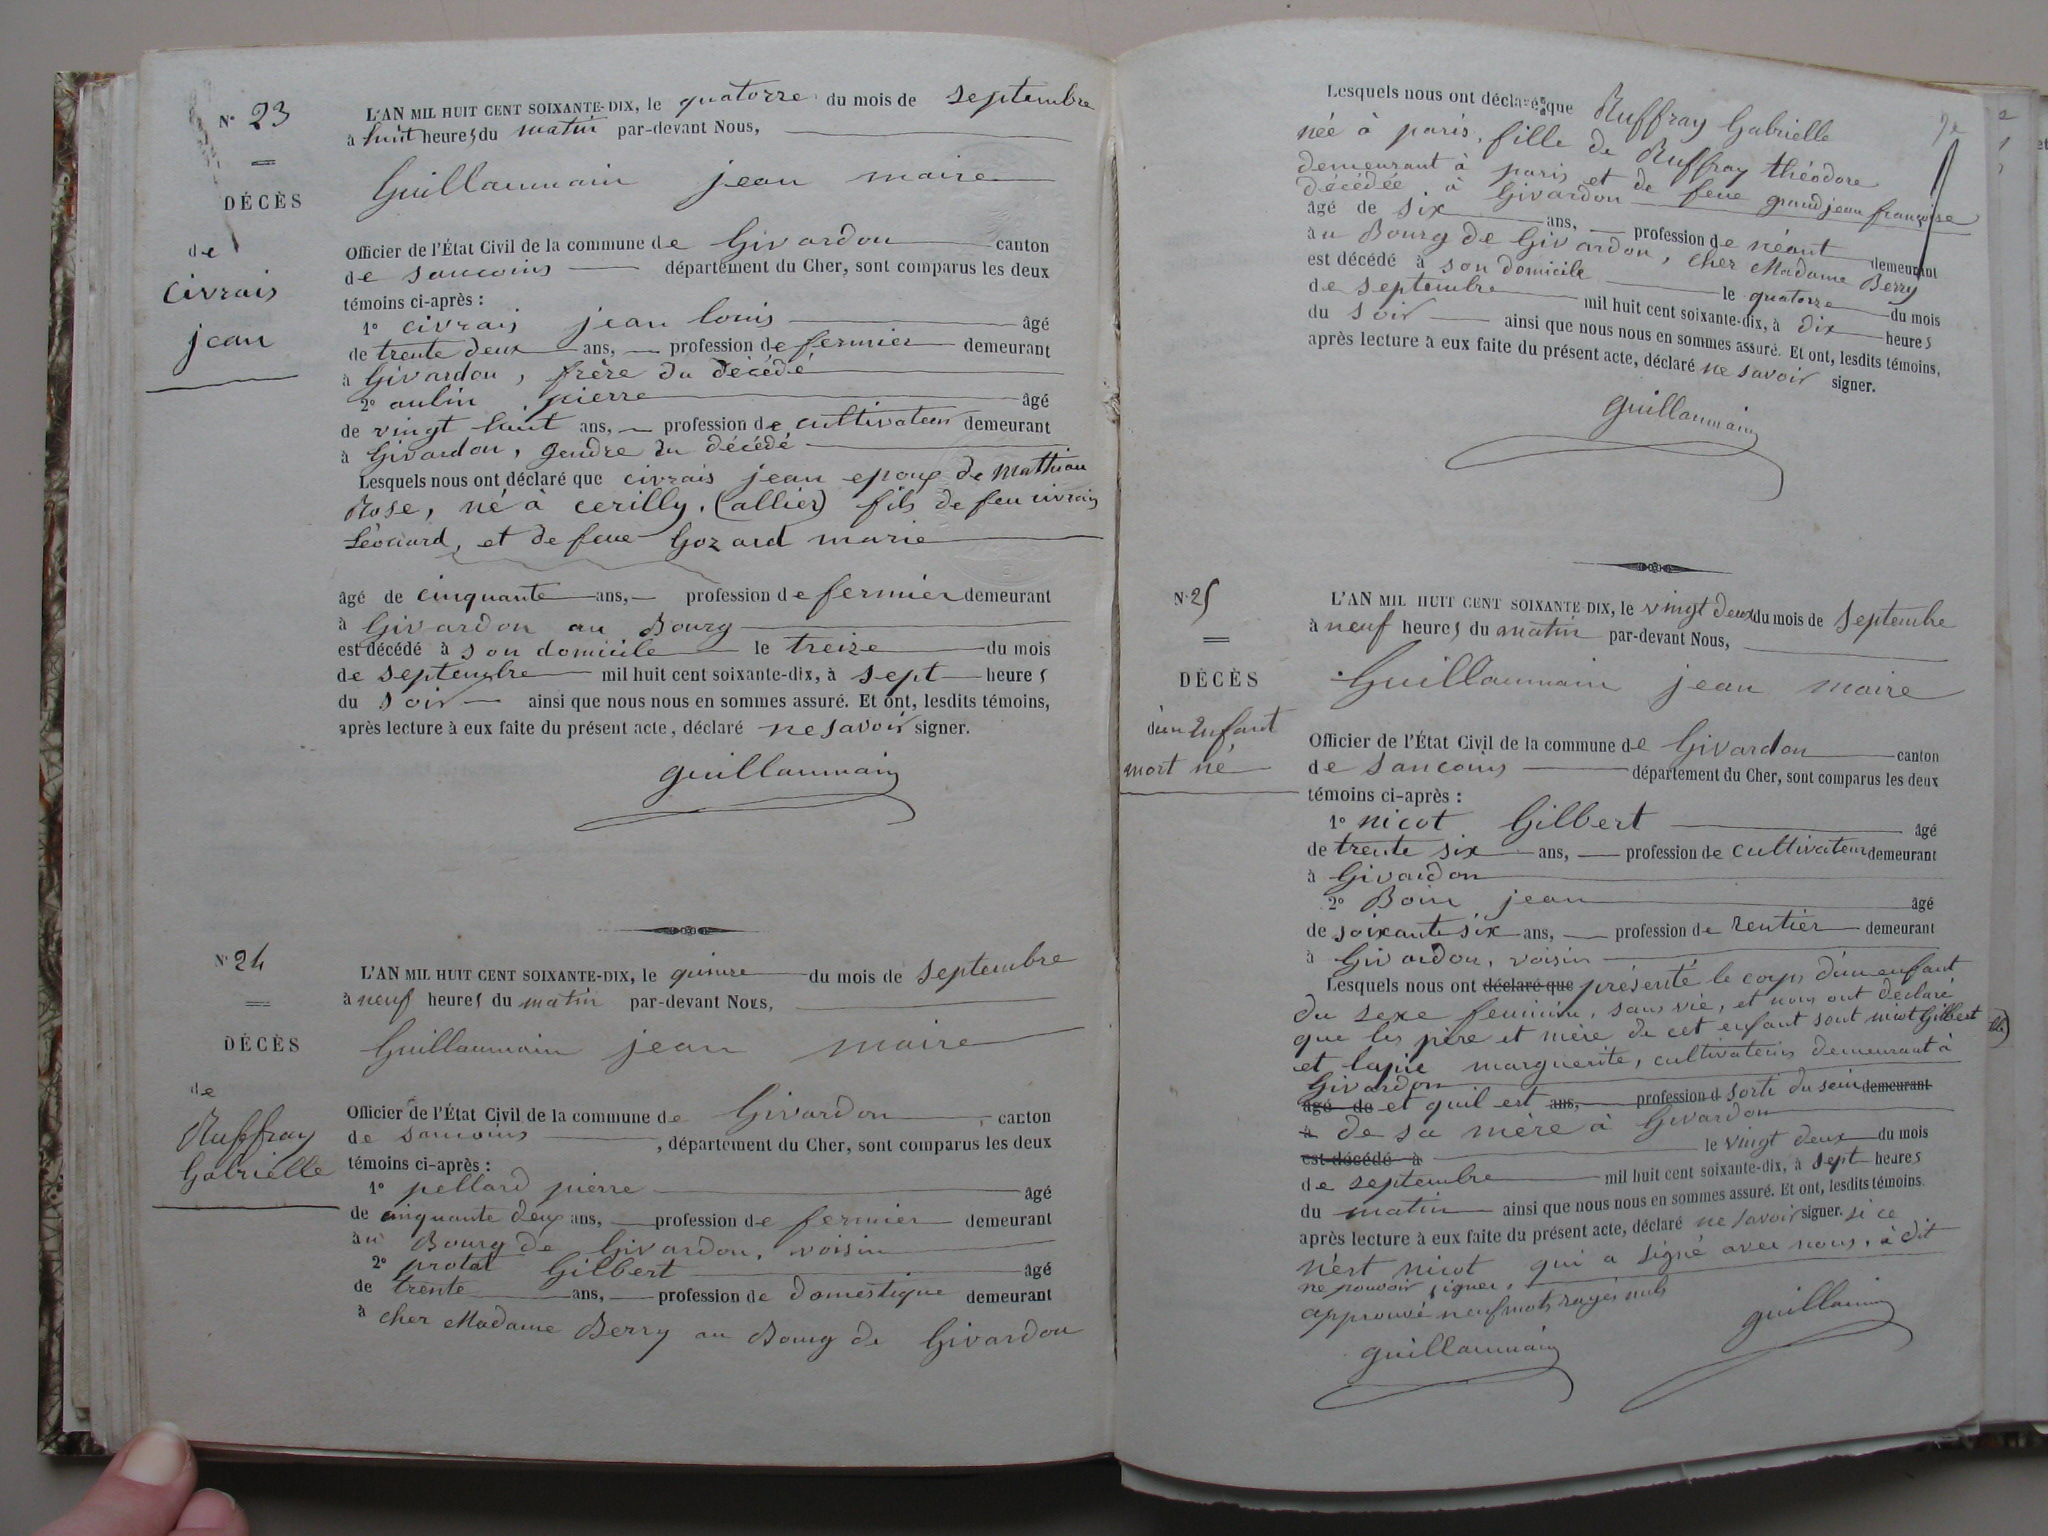 N° 23
DÉCÈS
de
Civrais
jean
L'AN MIL HUIT CENT SOIXANTE-DIX, le quatorze du mois de septembre
à huit heures du matin par-devant Nous,
Guillaumain jean maire
Officier de l'État Civil de la commune de Givardon canton
de sancoins département du Cher, sont comparus les deux
témoins ci-après :
1° civrais jean louis âgé
de trente deux ans, profession de fermier demeurant
à Givardon, frère du décédé
2° aubin pierre âgé
de vingt huit ans, profession de cultivateur demeurant
à Givardon, gendre du décédé
Lesquels nous ont déclaré que civrais jean epoux de Mathiau
Rose, né à cerilly, (allier) fils de feu civrais
Léonard, et de feue Gozard marie
âgé de cinquante ans, profession de fermier demeurant
à Givardon au Bourg
est décédé à son domicile le treize du mois
de septembre mil huit cent soixante-dix, à sept heures
du soir ainsi que nous nous en sommes assuré. Et ont, lesdits témoins,
après lecture à eux faite du présent acte, déclaré ne savoir signer.
guillaumain
N° 24
DÉCÈS
de
Ruffray
Gabrielle
L'AN MIL HUIT CENT SOIXANTE-DIX, le quinze du mois de septembre
à neuf heures du matin par-devant Nous,
Guillaumain jean maire
Officier de l'État Civil de la commune de Givardon canton
de sancoins, département du Cher, sont comparus les deux
témoins ci-après :
1° pellard pierre âgé
de cinquante deux ans, profession de fermier demeurant
au Bourg de Givardon, voisin
2° protat Gilbert âgé
de trente ans, profession de domestique demeurant
à cher Madame Berry au Bourg de Givardon
Lesquels nous ont déclaré que Ruffray Gabrielle
née à paris, fille de Ruffray théodore
demeurant à paris et de feue grandjean françoise
décédée à Givardon
âgé de six ans, profession de néant demeurant
au Bourg de Givardon, cher Madame Berry
est décédé à son domicile le quatorze du mois
de septembre mil huit cent soixante-dix, à dix heures
du soir ainsi que nous nous en sommes assuré. Et ont, lesdits témoins,
après lecture à eux faite du présent acte, déclaré ne savoir signer.
guillaumain
N° 25
DÉCÈS
d'un Enfant
mort né
L'AN MIL HUIT CENT SOIXANTE-DIX, le vingt deux du mois de septembre
à neuf heures du matin par-devant Nous,
Guillaumain jean maire
Officier de l'État Civil de la commune de Givardon canton
de sancoins département du Cher, sont comparus les deux
témoins ci-après :
1° nicot Gilbert âgé
de trente six ans, profession de cultivateur demeurant
à Givardon
2° Boin jean âgé
de soixante six ans, profession de rentier demeurant
à Givardon, voisin
Lesquels nous ont déclaré que présenté le corps d'un enfant
du sexe feminin, sans vie, et nous ont déclaré
que les père et mère de cet enfant sont nicot Gilbert
et lapie marguerite, cultivateurs demeurant à
Givardon
âgé de et quil est ans, profession d sorti du sein demeurant
à de sa mère à Givardon
est décédé à le vingt deux du mois
de septembre mil huit cent soixante-dix, à sept heures
du matin ainsi que nous nous en sommes assuré. Et ont, lesdits témoins,
après lecture à eux faite du présent acte, déclaré ne savoir signer. si ce
n'est nicot qui a signé avec nous, a dit
ne pouvoir signer,
approuvé neuf mots rayés nuls
guillaumin
guillaumain